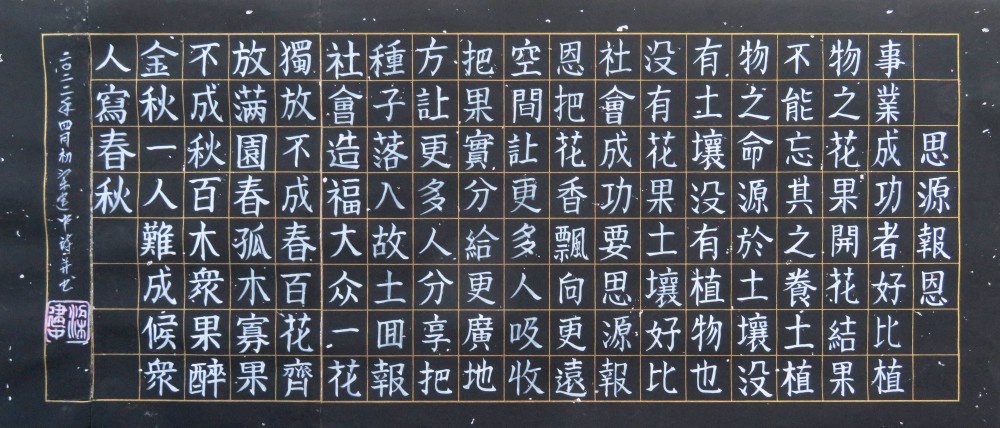 思源報恩
事業成功者好比植
物之花果開花結果
不能忘其之養土植
物之命源於土壤没
有土壤没有植物也
没有花果土壤好比
社會成功要思源報
恩把花香飄向更遠
空間让更多人吸收
把果實分給更廣地
方让更多人分享把
種子落入故土囬報
社會造福大众一花
獨放不成春百花齊
放满園春孤木寡果
不成秋百木衆果醉
金秋一人難成候衆
人寫春秋
二〇二二年四月初